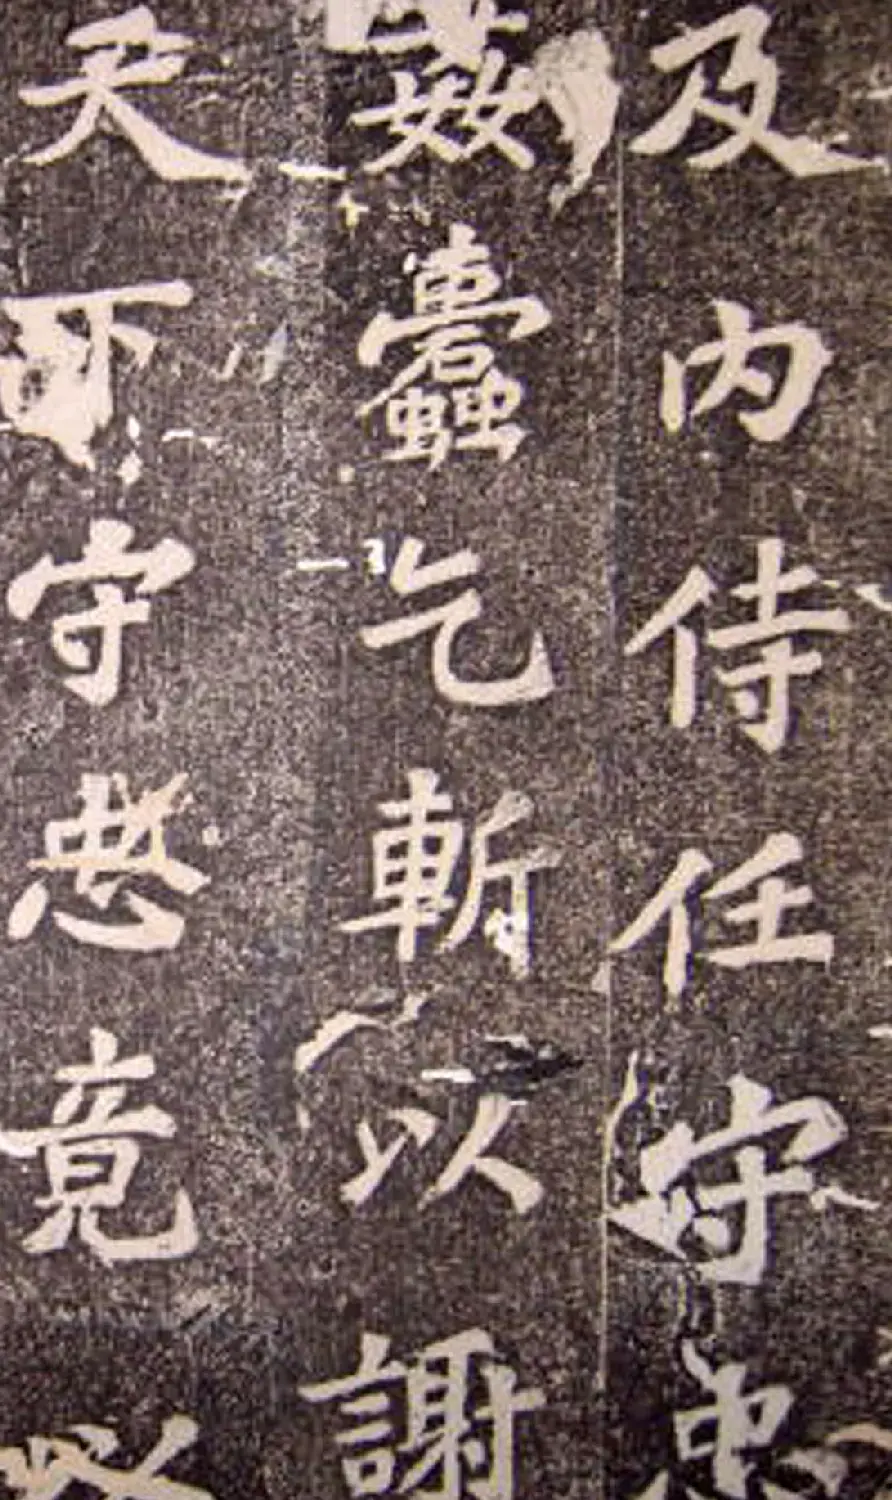 及内侍任守忠
姦蠹乞斬以謝
天下守忠竟